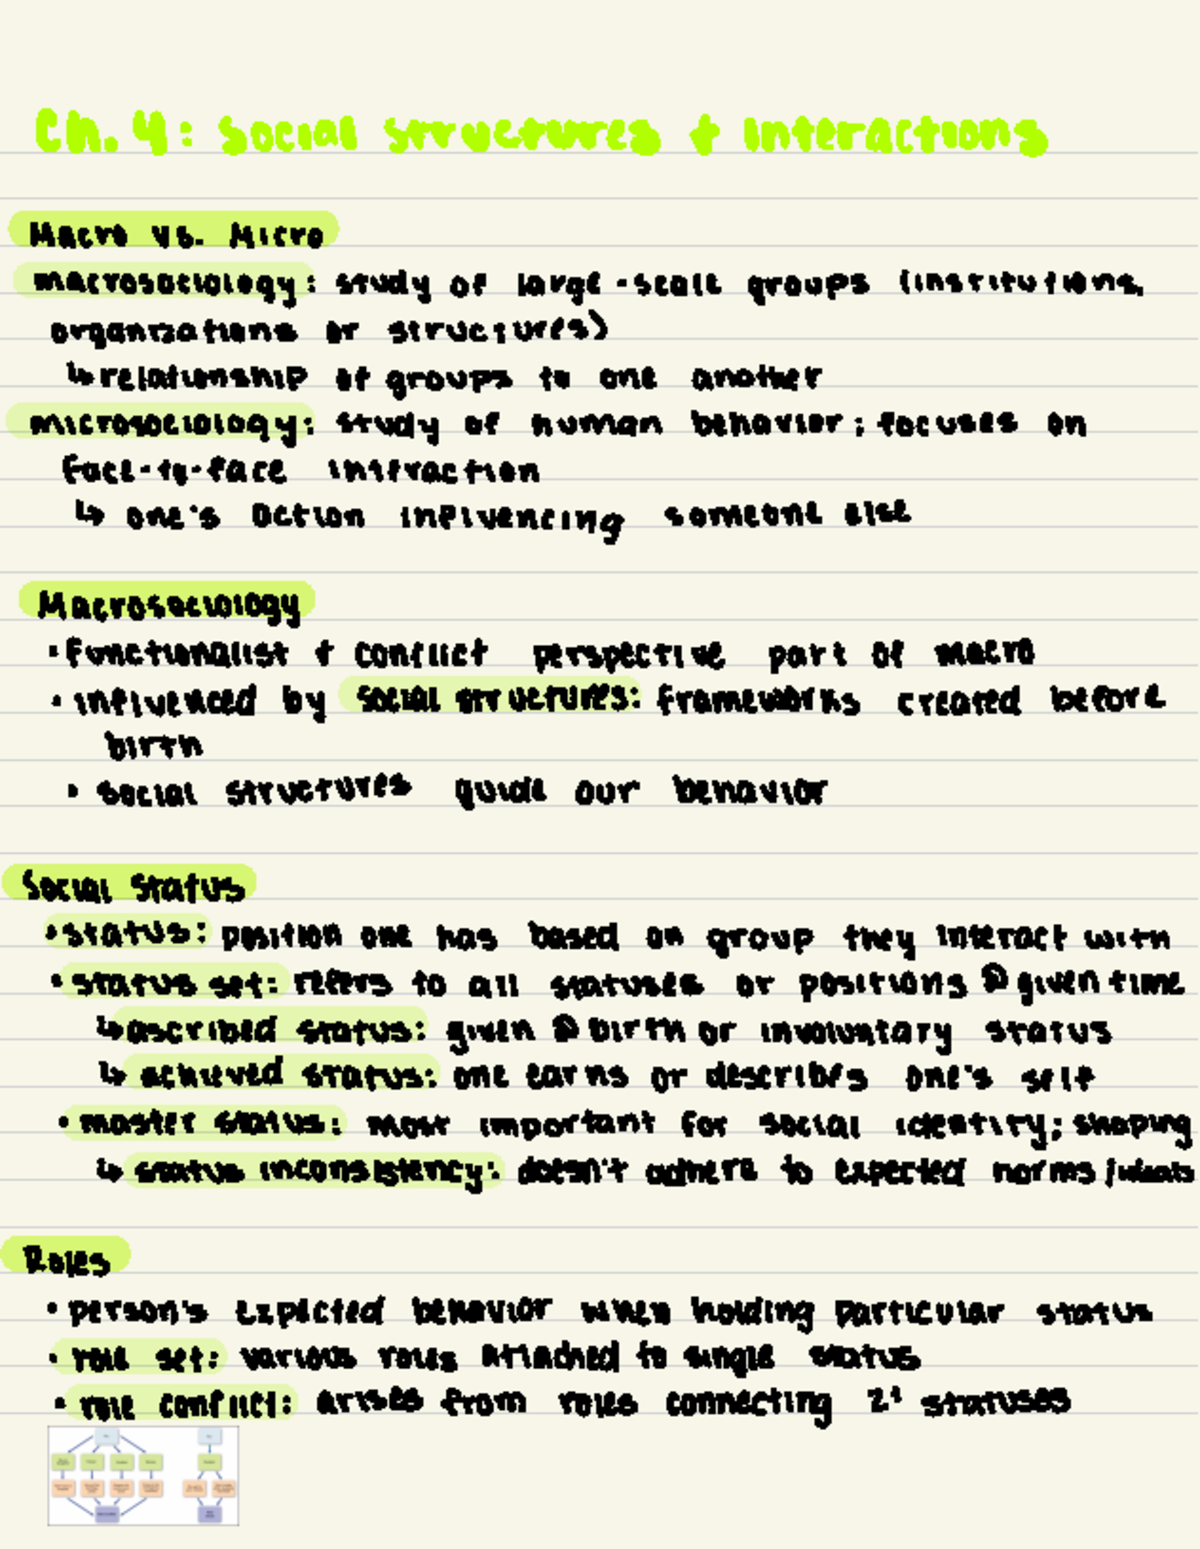 Ch. 4: Social Structures + Interactions
Macro vs. Micro
macrosociology: study of large-scale groups (institutions,
organizations or structures)
↳ relationship of groups to one another
microsociology: study of human behavior; focuses on
face-to-face intraction
↳ one's action influencing someone else
Macrosociology
• Functionalist + conflict perspective part of macro
• influenced by social structures: frameworks created before
birth
• social structures guide our behavior
Social Status
• status: position one has based on group they interact with
• status set: refers to all statuses or positions @ given time
↳ ascribed status: given @ birth or involuntary status
↳ achieved status: one earns or describes one's self
• master status: most important for social identity; shaping
↳ status inconsistency: doesn't adhere to expected norms /
Roles
• person's expected behavior when holding particular status
• role set: various roles attached to single status
• role conflict: arises from roles connecting 2+ statuses